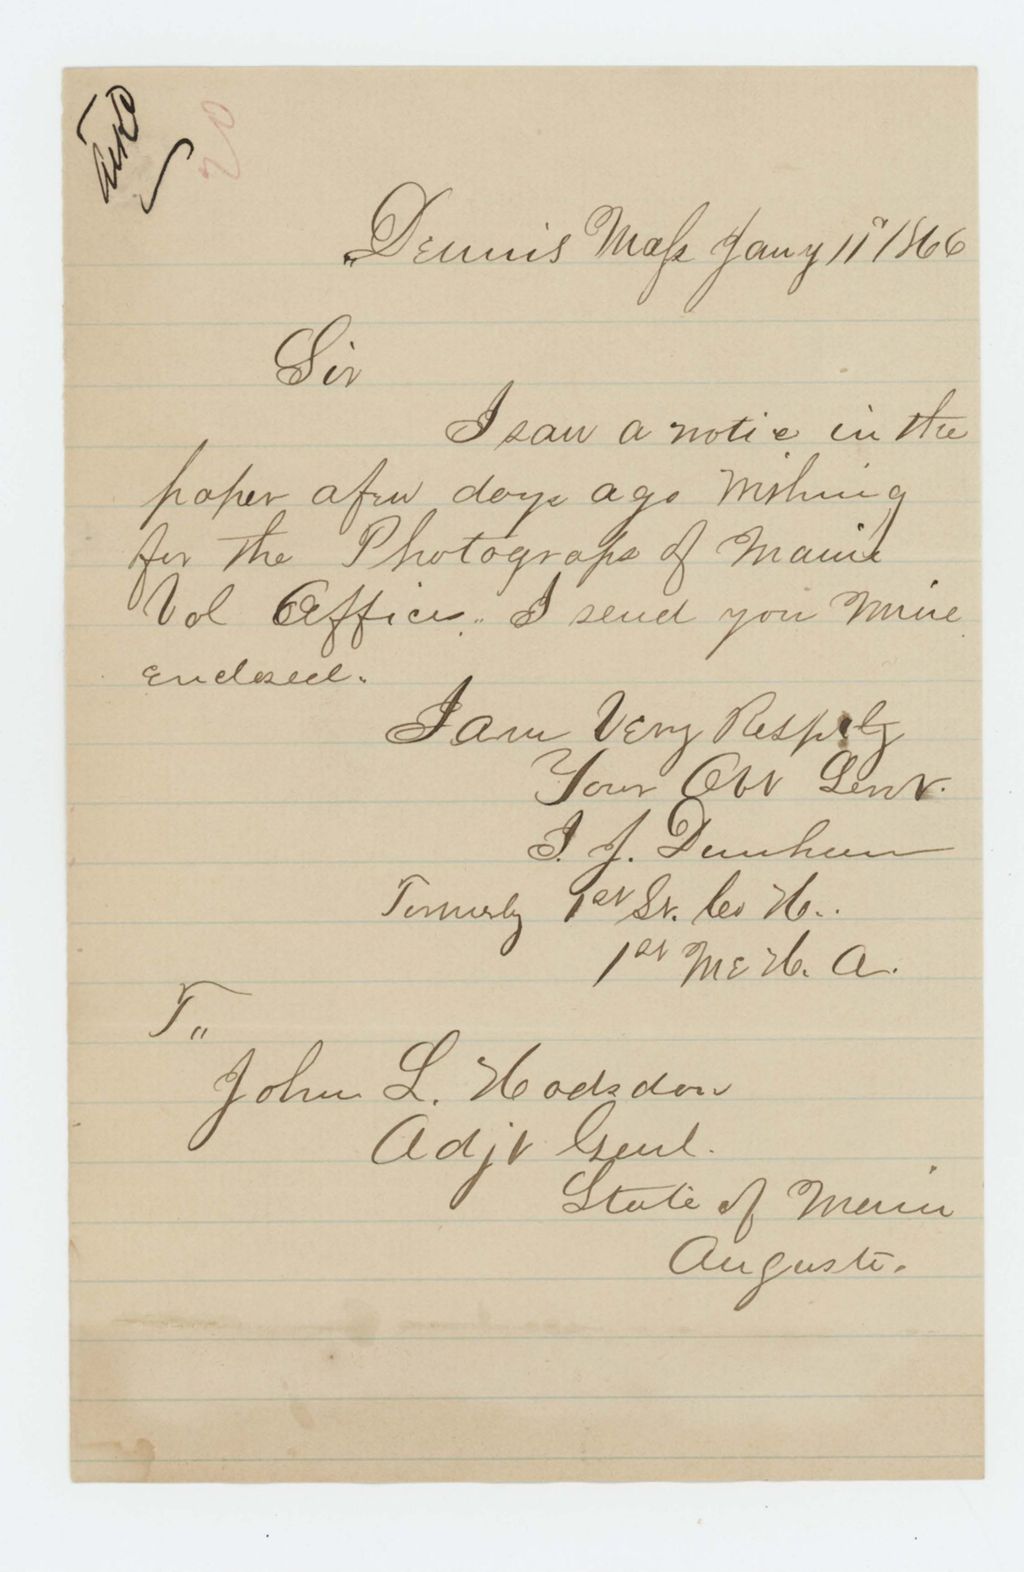 Dennis Mass Jany 11" 1866
Sir
I saw a notice in the
paper a few days ago wishing
for the Photograps of Maine
Vol Officers. I send you mine
enclosed.
I am Very Respcly
Your Obt Servt.
I. J. Dunham
Formerly 1st Lt. Co H..
1st ME H. A.
T"
John L. Hodsdon
Adjt Genl.
State of Maine
Augusta.